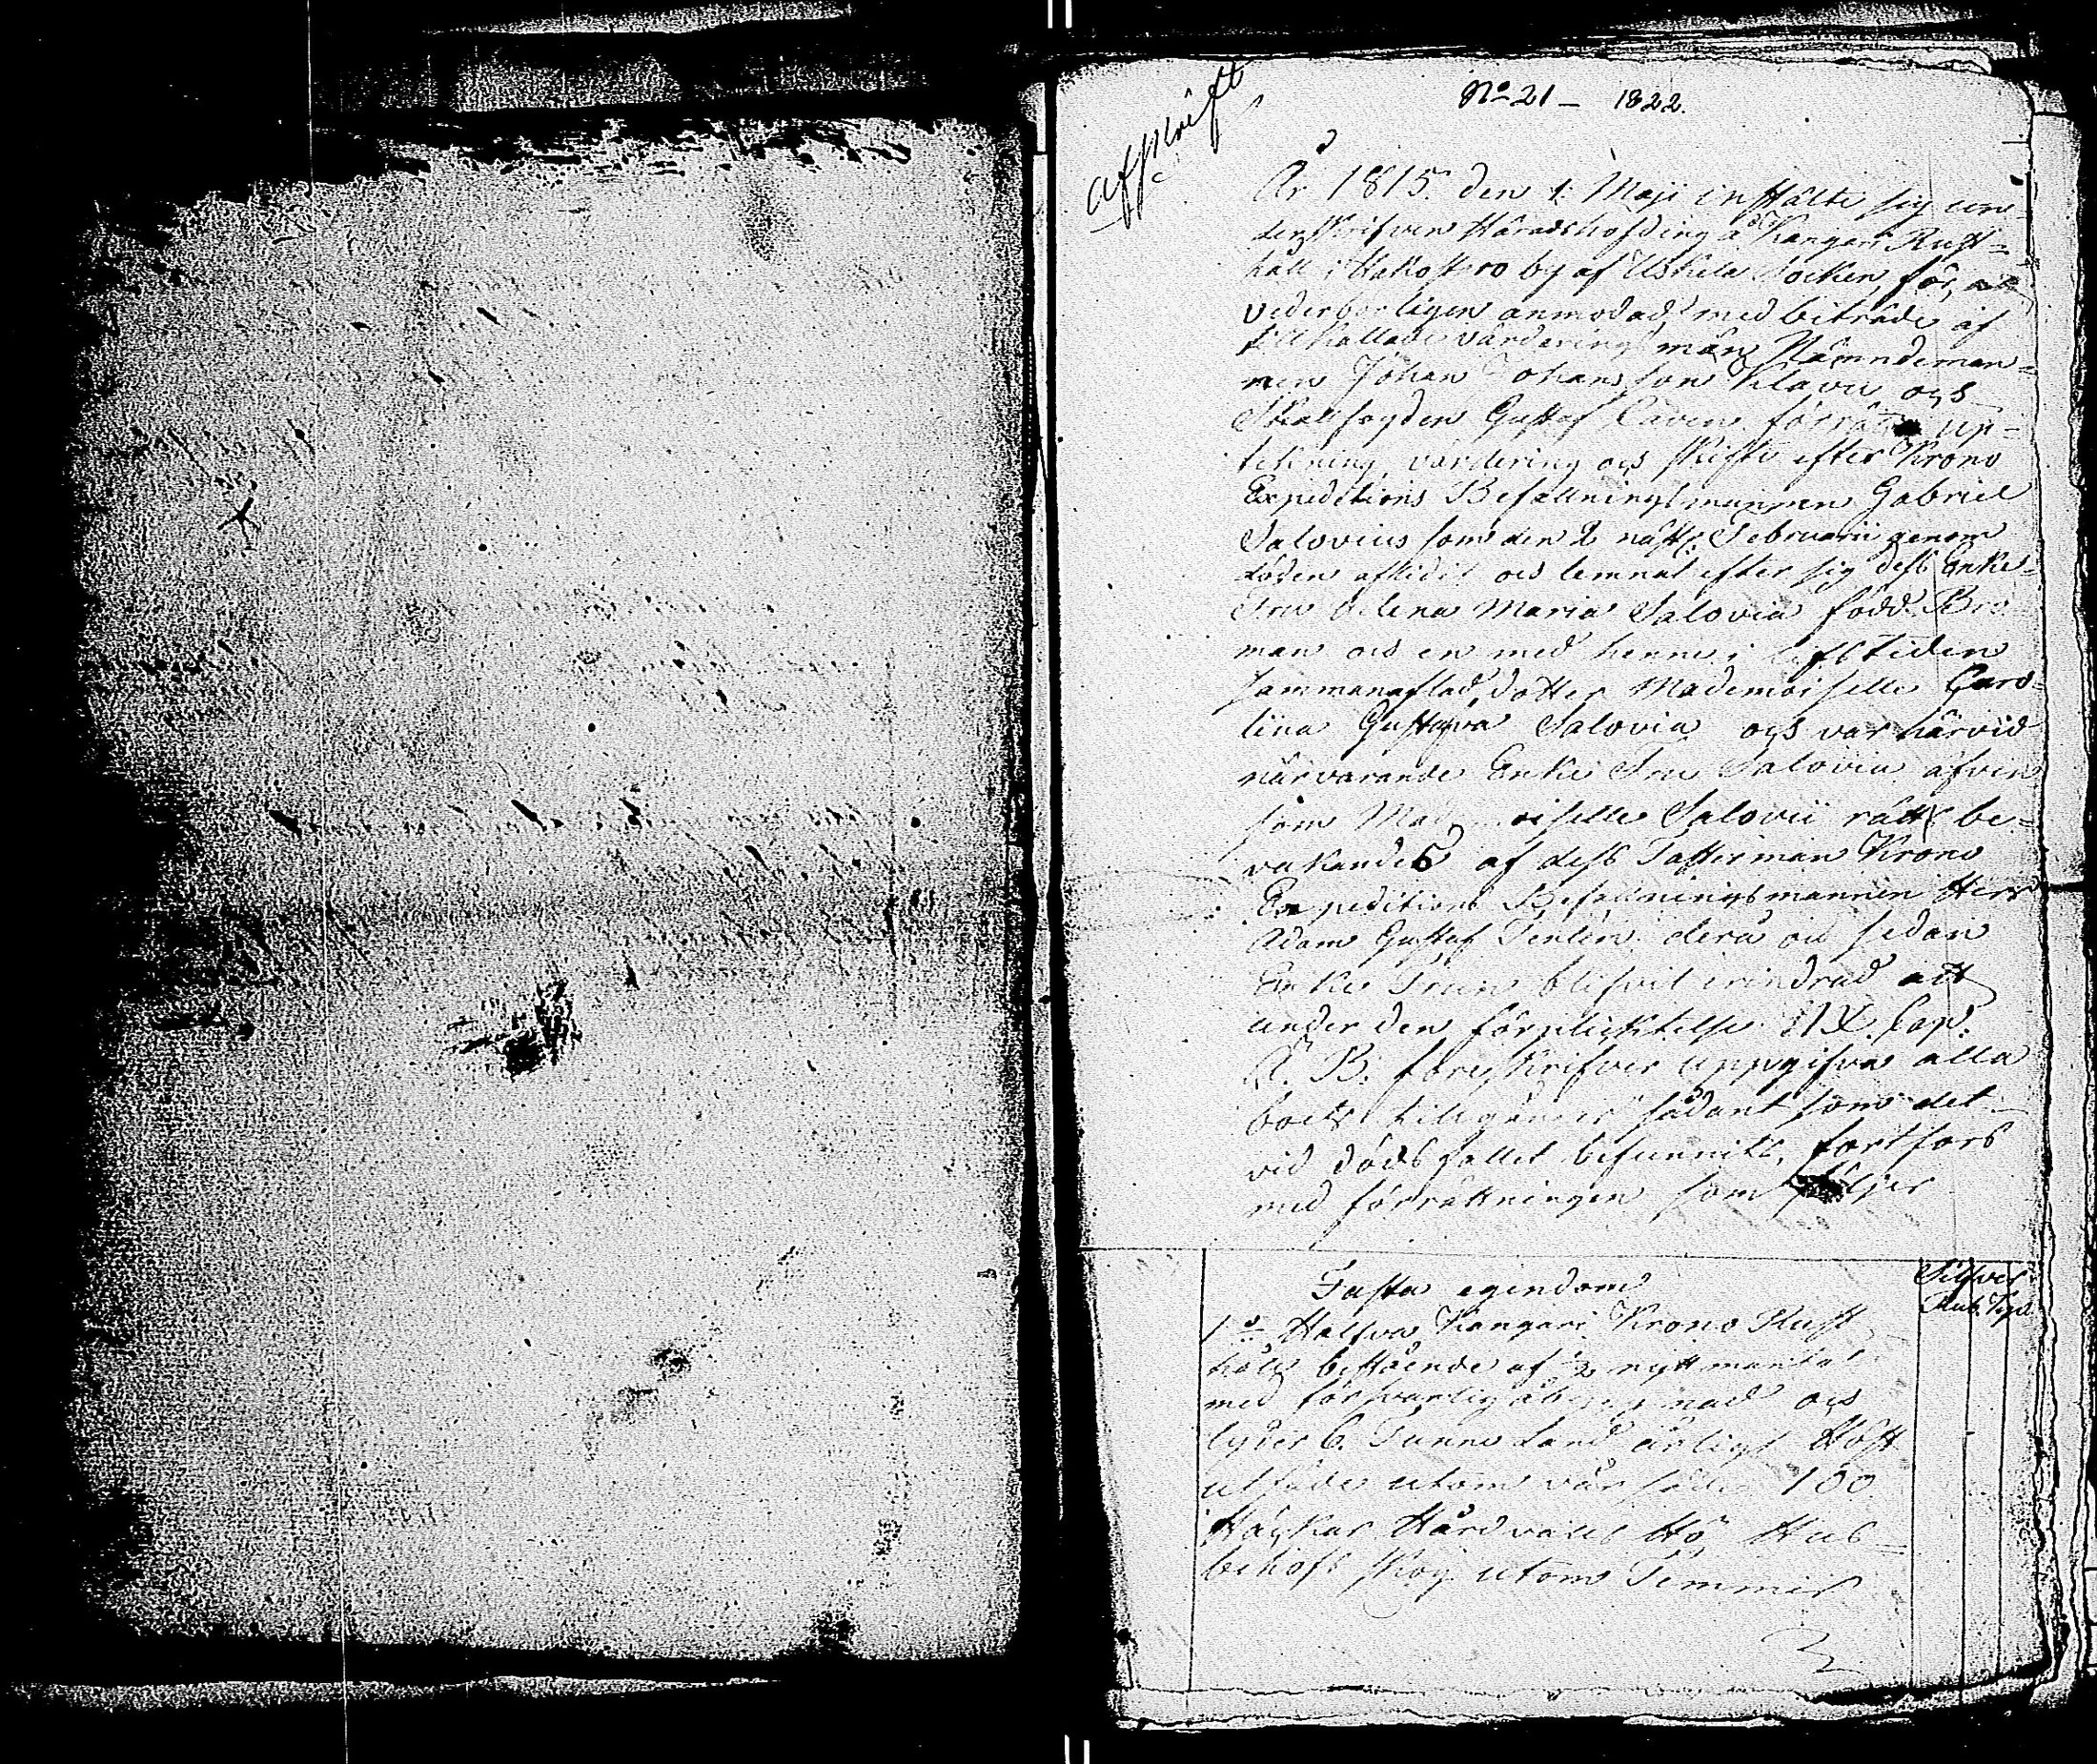 Afskrift
No 21 — 1822.
År 1815. den 1. Maji instälte sig un-
derskrifven Häradshöfding å Kangari Rust-
håll i Hakostaro by af Uskela Socken, för, att
vederbörligen anmodad med biträde af
tillkallade värderings män Nämndeman-
nen Johan Johansson Klavu och
Skallfogden Gustaf Caven förrätta up-
tekning, värdering och skifte efter Krono
Expeditions Befallningsmannen Gabriel
Salovius som den 2 näst: Februarii genom
döden aflidit och lemnat efter sig dess Enke-
Fru Helena Maria Salovia född Bro-
man och en med henne i Lifstiden
sammanaflad dotter Mademoiselle Caro-
lina Gustava Salovia och var härvid
närvarande Enke Fru Salovia äfven
som Mademoiselle Salovii rätt be-
vakandes af dess Fasterman Krono
Expeditions Befallningsmannen Herr
Adam Gustaf Tenlén. derå och sedan
Enke Frun blifvit erindrad att
under den förplicktelse IX Cap.
Ä. B. föreskrifver uppgifva alla
boets tillgångar sådant som det
vid dödsfallet befunnits, fortfors
med förrättningen som följer
Silfver
Rub. Kop.
Fasta egendom
1o Halfva Kangari Krono Rust
håll bestående af ½ nytt mantal
med försvarlig åbyggnad och
lyder 6. Tunne Land årligt Höst
utsäde utom vårsäde 100
Häckar Hårdvalls Hö, Hus
behofs skog utom Timmer